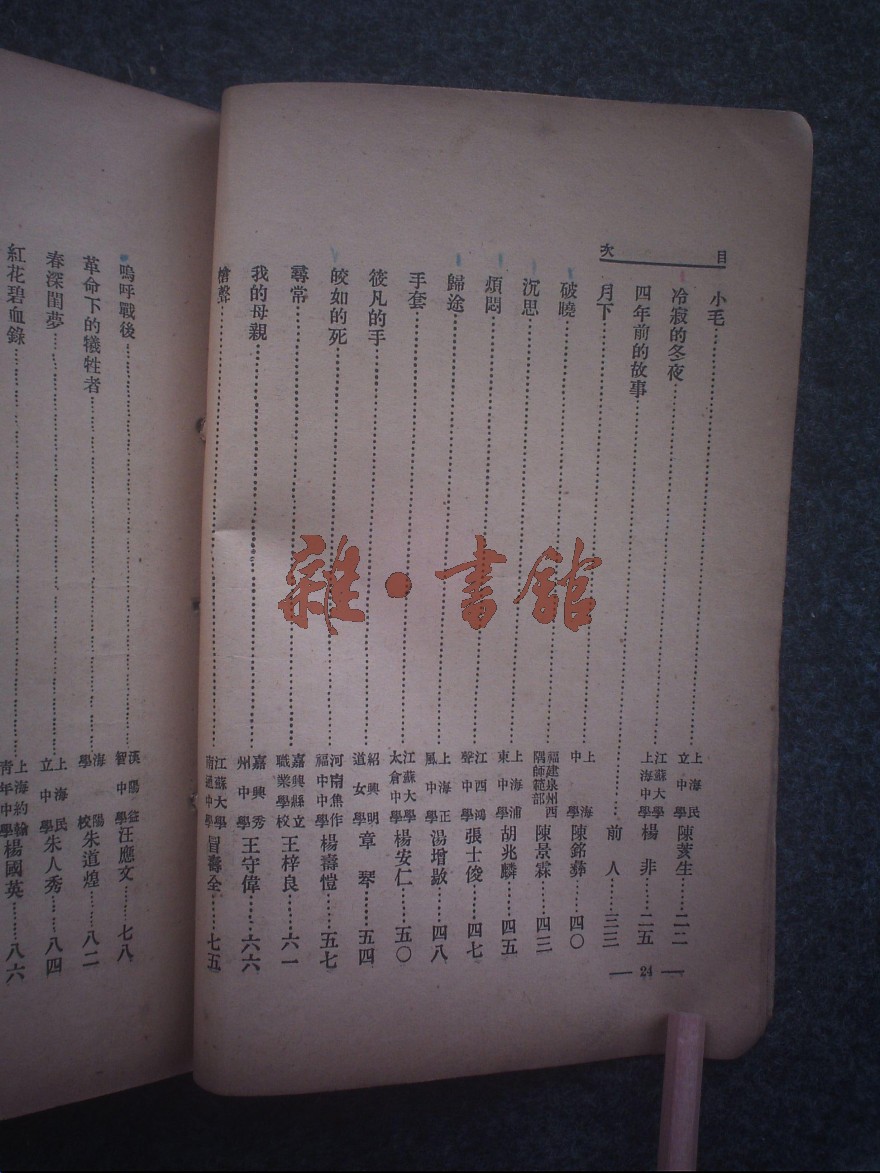 目次
小毛……上海民立中學 陳葵生……二二
冷寂的冬夜……江蘇大學上海中學 楊非……二五
四年前的故事……前人……三三
月下……上海中學 陳銘彝……四〇
破曉……福建泉州西隅師範部 陳景霖……四三
沉思……上海浦東中學 胡兆麟……四五
煩悶……江西鴻聲中學 張士俊……四七
歸途……上海正風中學 湯增敭……四八
手套……江蘇大學太倉中學 楊安仁……五〇
筱凡的手……紹興明道女學 章琴……五四
皎如的死……河南焦作福中中學 楊壽愷……五七
尋常……嘉興縣立職業學校 王梓良……六一
我的母親……嘉興秀州中學 王守偉……六六
槍聲……江蘇大學南通中學 冒壽全……七五
— 24 —
嗚呼戰後……漢陽益智中學 汪應文……七八
革命下的犧牲者……海陽學校 朱道煌……八二
春深閨夢……上海民立中學 朱人秀……八四
紅花碧血錄……上海約翰青年中學 楊國英……八六
雜·書館